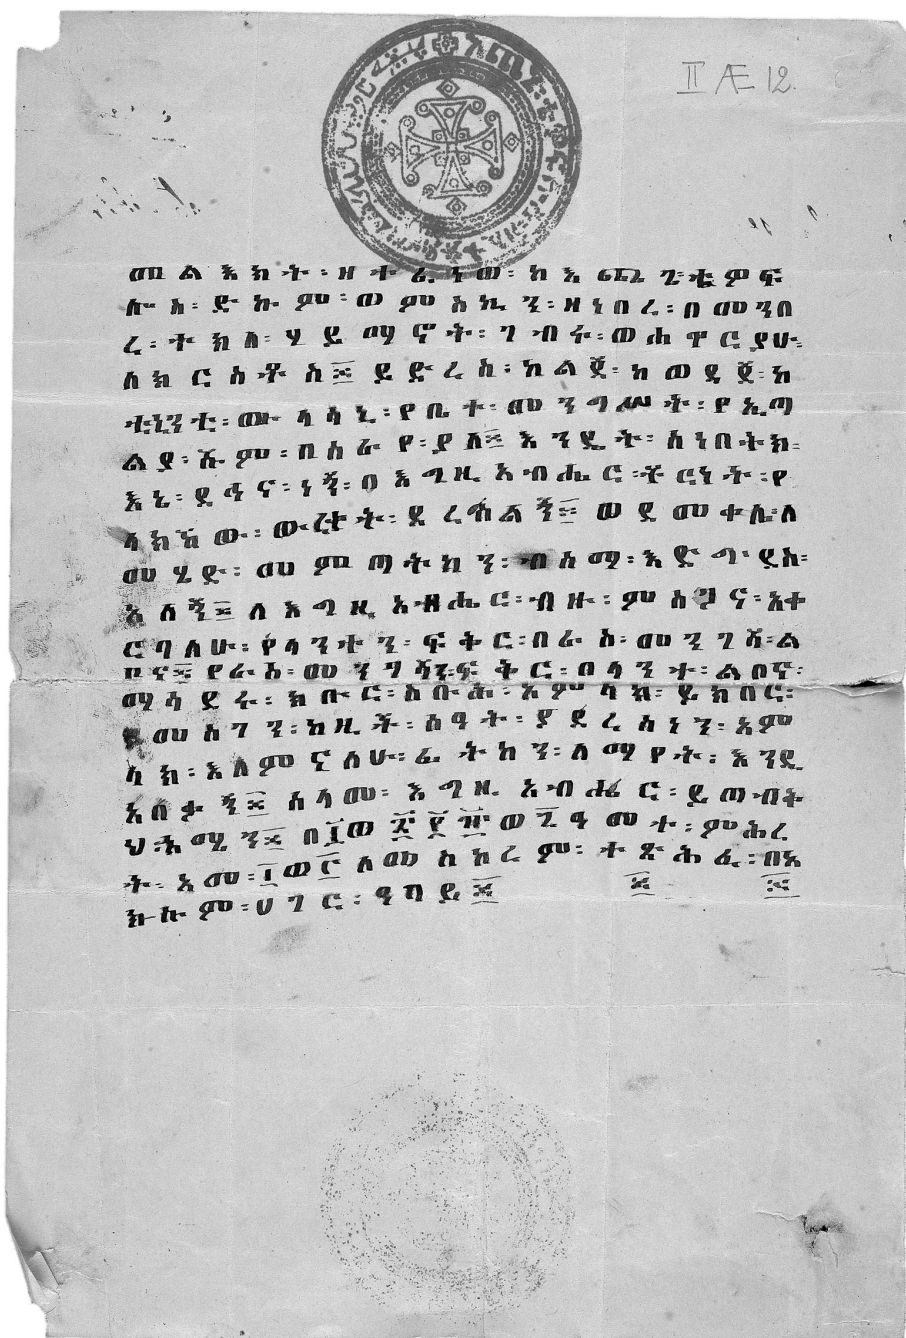 እጨጌ፡ ቴ
II Æ 12.
መልእክት፡ዘተፈነወ፡ከእጨጌ፡ቴዎፍ
ሎስ፡ድኩም፡ወምስኪን፡ዘነበረ፡በመንበ
ረ፡ተክለ፡ሃይማኖት፡ገብሩ፡ወሐዋርያሁ፡
ለክርስቶስ፨ይድረስ፡ከልጀ፡ከወዳጀ፡ከ
ቱኒንቲ፡ሙላላኒ፡የቤተ፡መንግሥት፡የኢጣ
ልያ፡ሹም፡በአስራየ፡ያለ፨እንዴት፡ሰነበትክ፡
እኔ፡ደኅና፡ነኝ፡በእግዚአብሔር፡ቸርነት፡የ
ላክኸው፡ወረቀት፡ደረሰልኝ፨ወደመቀሌ፡ለ
መሄድ፡መምጣትክን፡ብሰማ፡እድግ፡ደስ፡
አለኝ፨ለእግዚአብሔር፡ብዙ፡ምስጋና፡አቀ
ርባለሁ፡የላንተን፡ፍቅር፡በራስ፡መንገሻ፡ል
ቦና፨የራስ፡መንገሻን፡ፍቅር፡በላንተ፡ልቦና፡
ማሳደሩ፡ክቡር፡ስቡሕ፡አምላክ፡ይክበር፡
ይመስገን፡ከዚች፡ሰዓት፡ያደረሰነን፡አም
ላክ፡አለምናለሁ፡ፊትክን፡ለማየት፡እንዴ
አበቃኝ፨ሰላመ፡እግዚአብሔር፡ይጠብቅ
ህ፡አሜን፨በ፲ወ፰፻፹ወ፯ዓመተ፡ምሕረ
ት፡አመ፡፲ወ፫ለመስከረም፡ተጽሕፈ፡በአ
ክሱም፡ሀገር፡ዓባይ፨ ፨ ፨